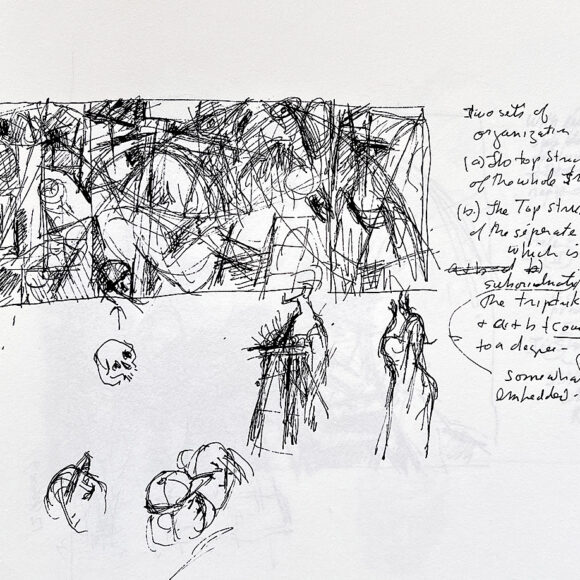 Two sets of
organization
(a) The top struc
of the whole
(b.) The Top stru
of the separate
which is
subordinate
The triptik
+ a + b + cou
to a degree -
somewha
embedded -